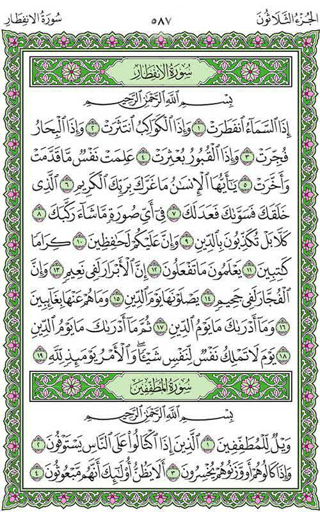 الجزء الثلاثون ٥٨٧ سورة الانفطار
سورة الانفطار
بسم الله الرحمن الرحيم
إِذَا ٱلسَّمَآءُ ٱنفَطَرَتْ ١ وَإِذَا ٱلْكَوَاكِبُ ٱنتَثَرَتْ ٢ وَإِذَا ٱلْبِحَارُ
فُجِّرَتْ ٣ وَإِذَا ٱلْقُبُورُ بُعْثِرَتْ ٤ عَلِمَتْ نَفْسٌ مَّا قَدَّمَتْ
وَأَخَّرَتْ ٥ يَٰٓأَيُّهَا ٱلْإِنسَٰنُ مَا غَرَّكَ بِرَبِّكَ ٱلْكَرِيمِ ٦ ٱلَّذِى
خَلَقَكَ فَسَوَّىٰكَ فَعَدَلَكَ ٧ فِىٓ أَىِّ صُورَةٍ مَّا شَآءَ رَكَّبَكَ ٨
كَلَّا بَلْ تُكَذِّبُونَ بِٱلدِّينِ ٩ وَإِنَّ عَلَيْكُمْ لَحَٰفِظِينَ ١٠ كِرَامًا
كَٰتِبِينَ ١١ يَعْلَمُونَ مَا تَفْعَلُونَ ١٢ إِنَّ ٱلْأَبْرَارَ لَفِى نَعِيمٍ ١٣ وَإِنَّ
ٱلْفُجَّارَ لَفِى جَحِيمٍ ١٤ يَصْلَوْنَهَا يَوْمَ ٱلدِّينِ ١٥ وَمَا هُمْ عَنْهَا بِغَآئِبِينَ
١٦ وَمَآ أَدْرَىٰكَ مَا يَوْمُ ٱلدِّينِ ١٧ ثُمَّ مَآ أَدْرَىٰكَ مَا يَوْمُ ٱلدِّينِ
١٨ يَوْمَ لَا تَمْلِكُ نَفْسٌ لِّنَفْسٍ شَيْـًٔا ۖ وَٱلْأَمْرُ يَوْمَئِذٍ لِّلَّهِ ١٩
سورة المطففين
بسم الله الرحمن الرحيم
وَيْلٌ لِّلْمُطَفِّفِينَ ١ ٱلَّذِينَ إِذَا ٱكْتَالُوا۟ عَلَى ٱلنَّاسِ يَسْتَوْفُونَ ٢
وَإِذَا كَالُوهُمْ أَو وَّزَنُوهُمْ يُخْسِرُونَ ٣ أَلَا يَظُنُّ أُو۟لَٰٓئِكَ أَنَّهُم مَّبْعُوثُونَ ٤